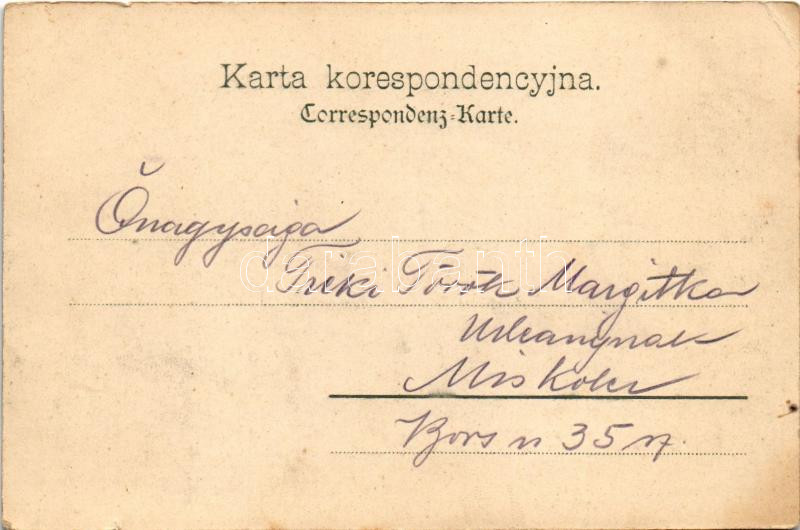 Karta korespondencyjna.
Correspondenz-Karte.
Őnagysága
Török Margitka
Urleánynak
Miskolcz
Bors u 35
darabanth